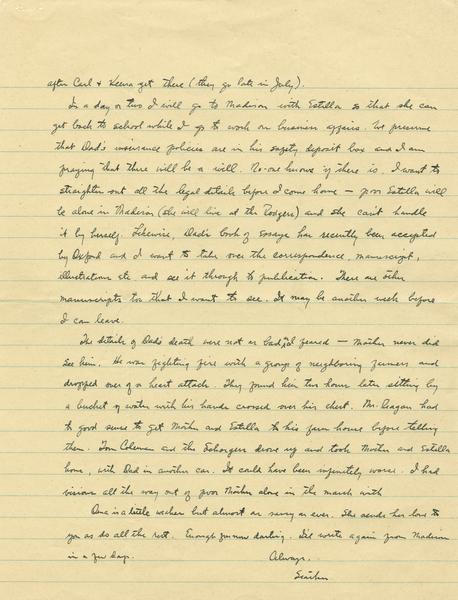 after Carl & Keena get there (they go late in July).
In a day or two I will go to Madison with Estella so that she can
get back to school while I go to work on business affairs. We presume
that Dad's insurance policies are in his safety deposit box and I am
praying that there will be a will. No-one knows if there is. I want to
straighten out all the legal details before I come home — poor Estella will
be alone in Madison (she will live at the Rodgers) and she can't handle
it by herself. Likewise, Dad's book of essays has recently been accepted
by Oxford and I want to take over the correspondence, manuscript,
illustrations etc and see it through to publication. There are other
manuscripts too that I want to see. It may be another week before
I can leave.
The details of Dad's death were not as bad as I feared — Mother never did
see him. He was fighting fire with a group of neighboring farmers and
dropped over of a heart attack. They found him two hours later sitting by
a bucket of water with his hands crossed over his chest. Mr. Reagan had
to good sense to get Mother and Estella to his farm house before telling
them. Tom Coleman and the Schorgers drove up and took Mother and Estella
home, with Dad in another car. It could have been infinitely worse. I had
visions all the way out of poor Mother alone in the marsh with
One is a little weaker but almost as merry as ever. She sends her love to
you as do all the rest. Enough for now darling. I'll write again from Madison
in a few days.
Always.
Starker